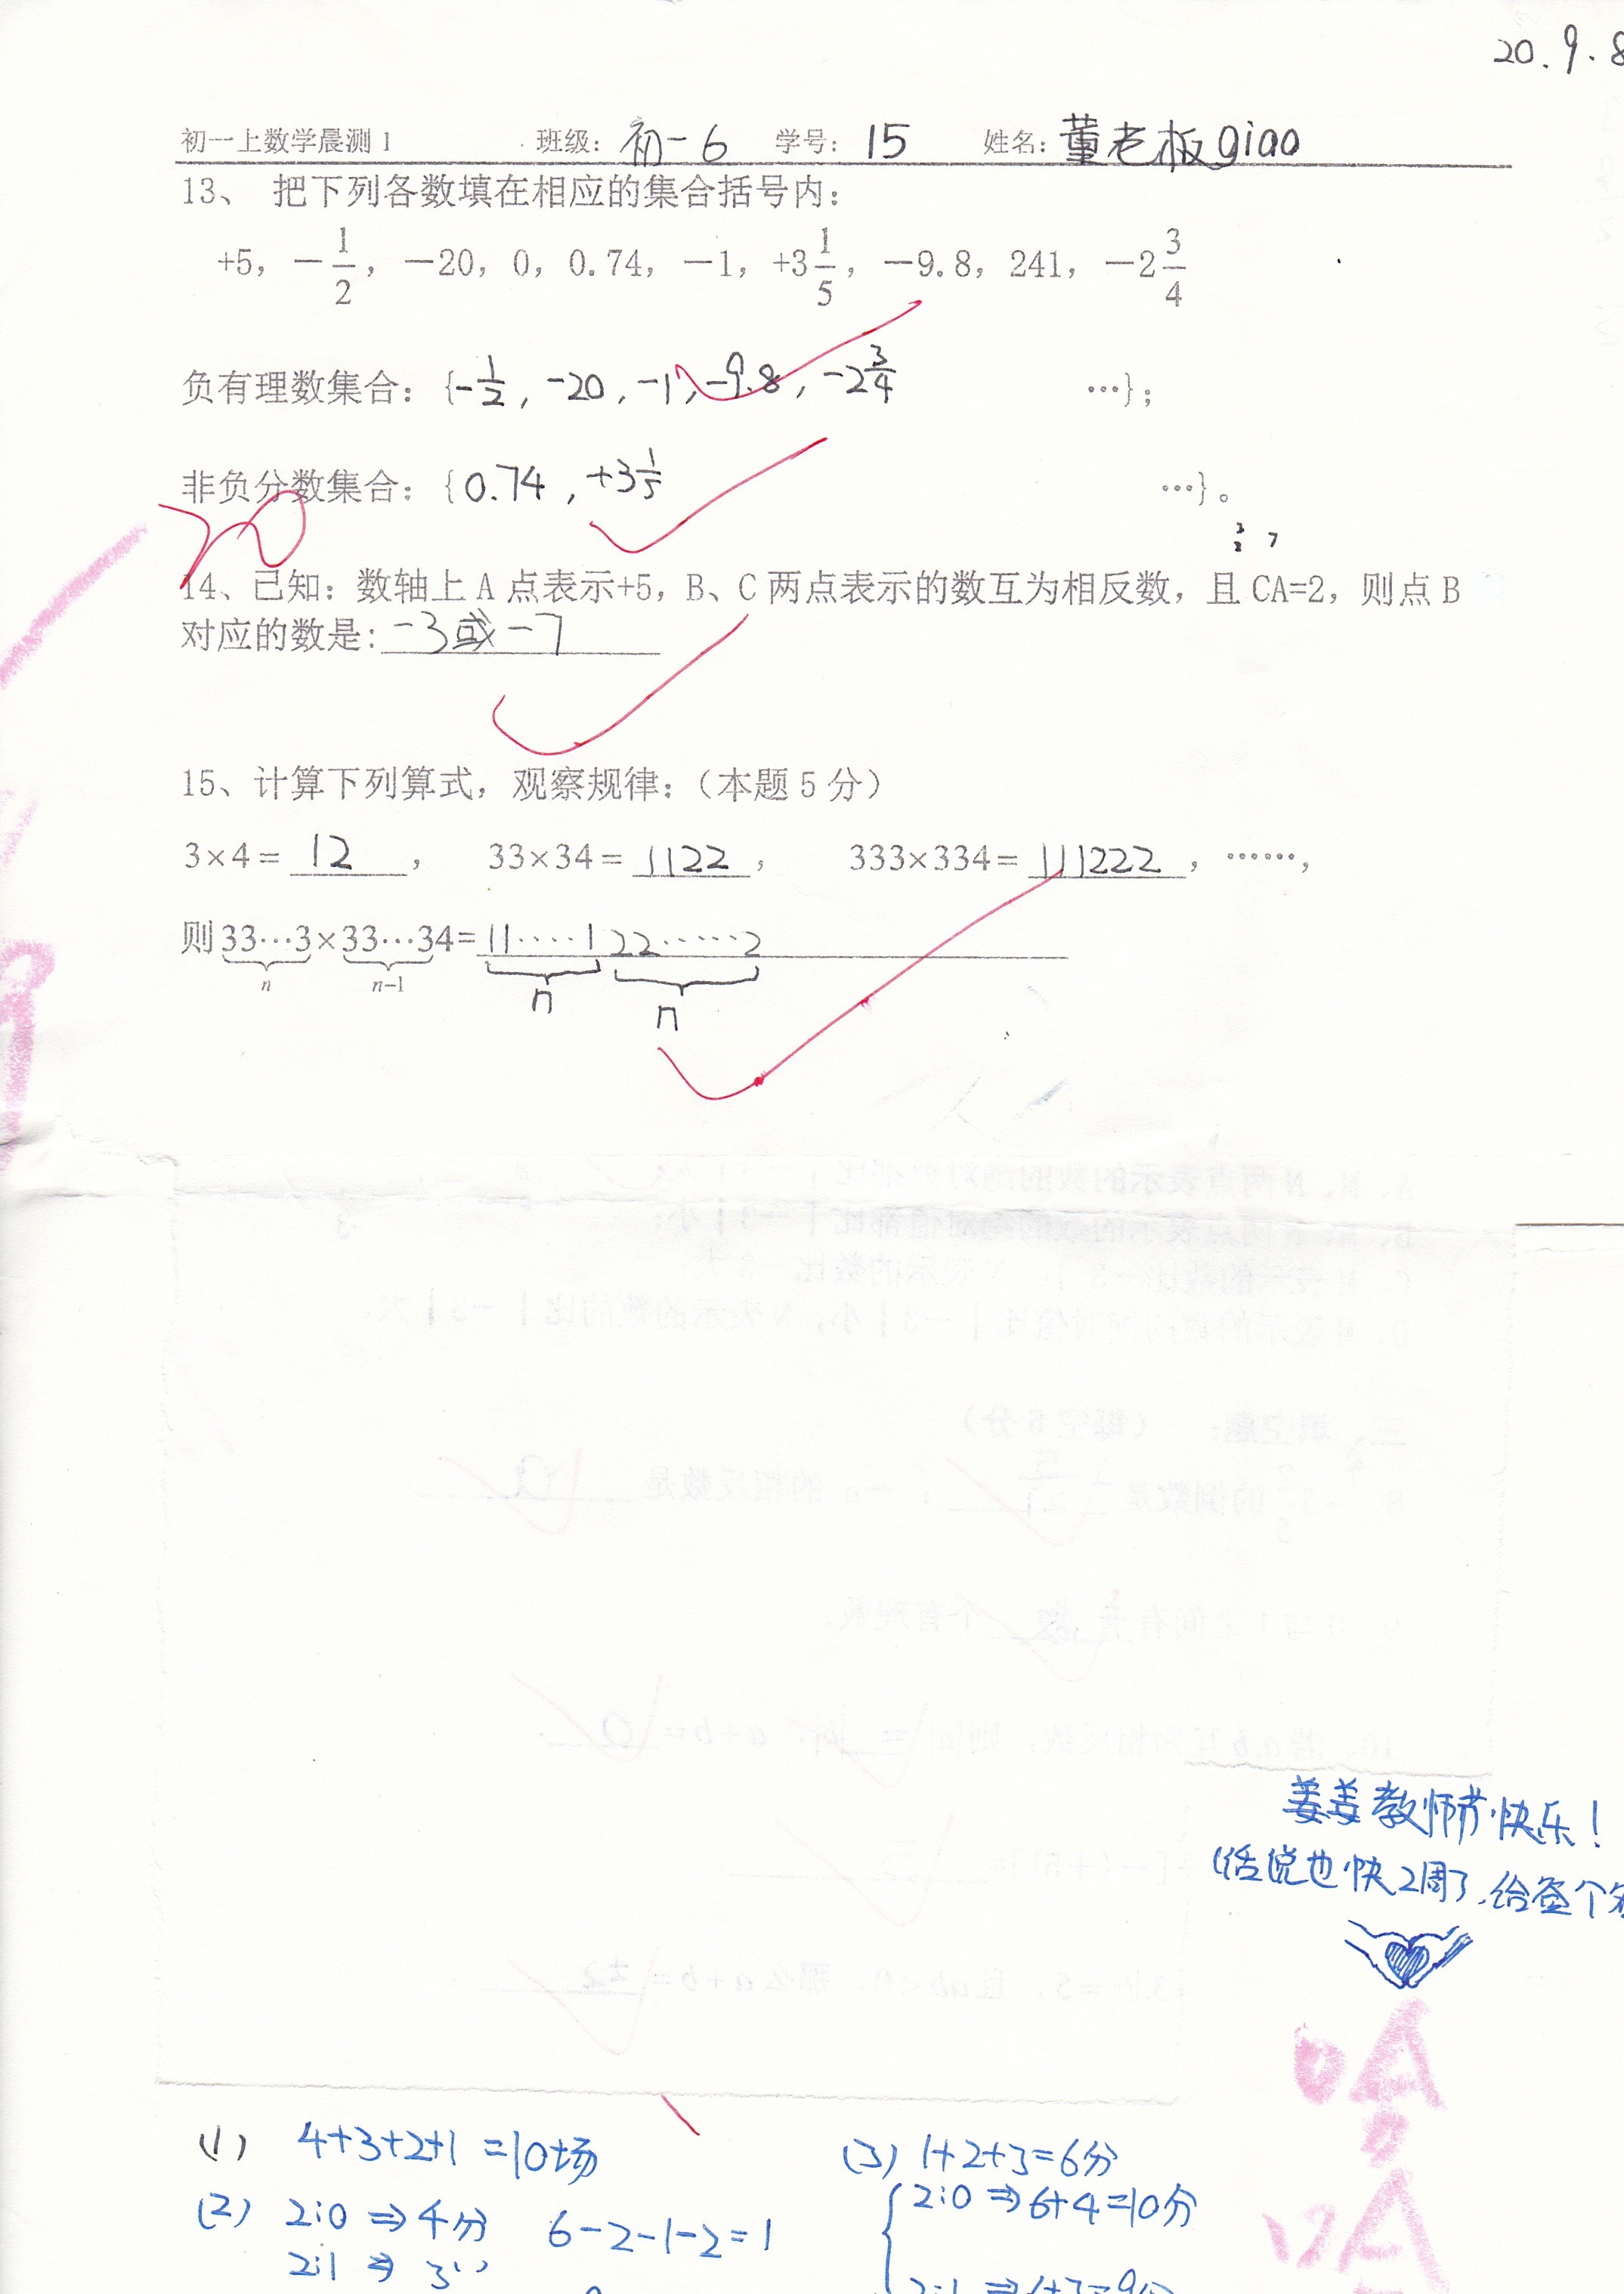 20.9.8
初一上数学晨测1 班级：初一6 学号：15 姓名：董老板qiao
13、 把下列各数填在相应的集合括号内：
+5, －1/2, －20, 0, 0.74, －1, +3 1/5, －9.8, 241, －2 3/4
负有理数集合：{-1/2, -20, -1, -9.8, -2 3/4 …}；
非负分数集合：{0.74, +3 1/5 …}。
3
2 7
14、已知：数轴上 A 点表示+5，B、C 两点表示的数互为相反数，且 CA=2，则点 B
对应的数是：-3或-7
15、计算下列算式，观察规律：（本题 5 分）
3×4＝12， 33×34＝1122， 333×334＝111222，……，
则33…3×33…34=11····1 22······2
n n-1 n n
姜姜教师节快乐！
(话说也快2周了，给签个
(1) 4+3+2+1=10场
(3) 1+2+3=6分
(2) 2:0 ⇒ 4分 6-2-1-2=1
2:0 ⇒ 6+4=10分
2:1 ⇒ 3''
2:1 ⇒ 6+3=9分